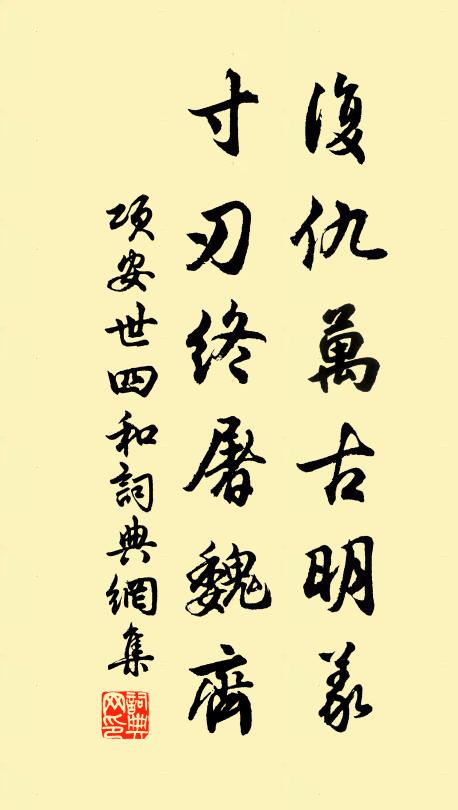 復仇萬古明義
寸刃終屠魏齊
項安世四和詞典網集
詞典
网印